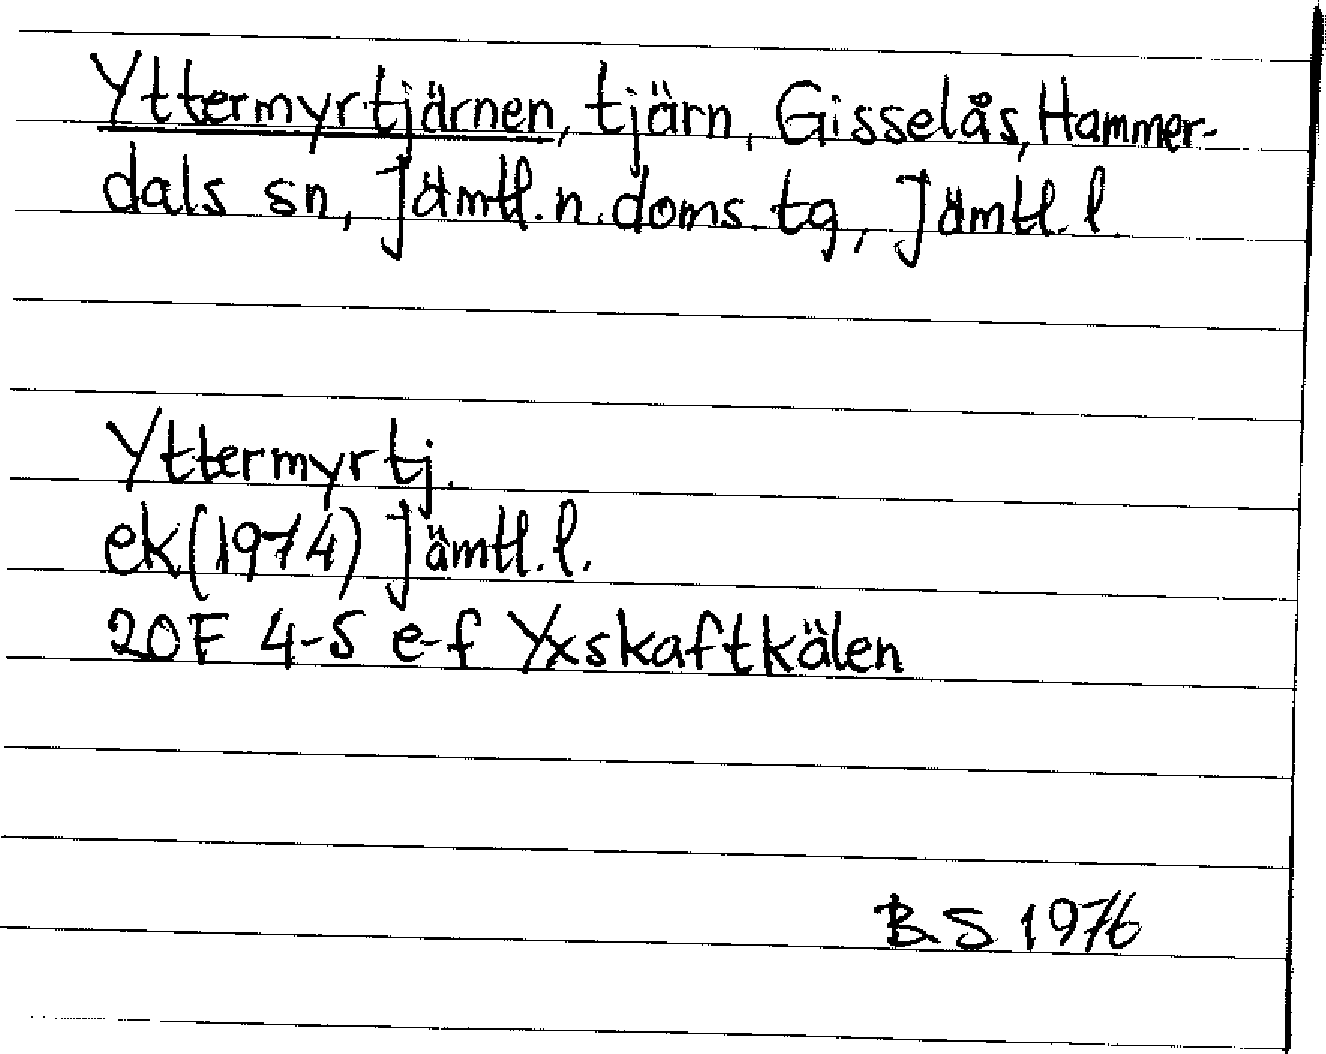 Yttermyrtjärnen, tjärn, Gisselås, Hammer-
dals sn, Jämtl. n. doms. tg, Jämtl. l.
Yttermyrtj.
ek (1974) Jämtl. l.
20F 4-5 e-f Yxskaftkälen
BS 1976